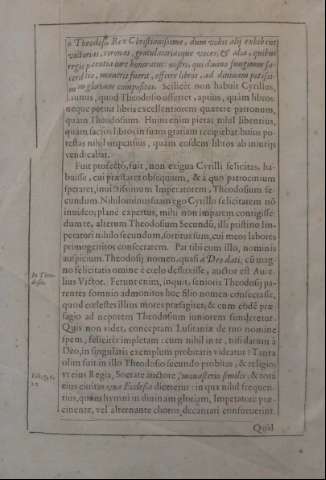 ò Theodosi Rex Christianissime, dum vobis alij exhibent
victorias, coronas, gratulatoriasque voces, & alia, quibus
regia potentia iure honoratur: nostri, qui divino funguntur sa-
cerdotio, muneris fuerit, offerre libros, ad divinam potissi-
gloriam compositos. Scilicet non habuit Cyrillus,
quod Theodosio offerret, aptius, quàm libros:
neque potuit libris excellentiorem quærere patronum,
quàm Theodosium. Huius enim pietas nihil libentius,
quàm sacros libros in suam gratiam recipiebat: huius po-
testas nihil impensius, quàm eosdem libros ab iniurijs
vendicabat.
Fuit profectò, fuit, non exigua Cyrilli felicitas, ha-
buisse, cui præstaret obsequium, & à quo patrocinium
speraret, invictissimum Imperatorem, Theodosium se-
cundum. Nihilominus tamen ego Cyrilli felicitatem nō
invideo; planè expertus, mihi non imparem contigisse:
dum te, alterum Theodosium Secundū, illi pristino Im-
peratori nihilo secundum, sortitus sum, cui meos labores
primogenitos consecrarem. Par tibi cum illo, nominis
auspicium. Theodosij nomen, quasi à Deo dati, cū mag-
no felicitatis omine è cælo defluxisse, auctor est Aure-
lius Victor. Ferunt enim, inquit, senioris Theodosij pa-
rentes somnio admonitos hoc filio nomen consecrasse,
quod cælestes illius mores præsagiret, & cum eodē præ-
sagio ad nepotem Theodosium iuniorem funderetur.
Quis non videt, conceptam Lusitaniæ de tuo nomine
spem, feliciter impletam: cum nihil in te, nisi datum à
Deo, in singularis exemplum probitatis videatur? Tanta
olim fuit in illo Theodosio secundo probitas, & religio,
vt eius Regia, Socrate auctore, monasterio similis, & tota
eius civitas vna Ecclesia diceretur: in qua nihil frequen-
tius, quàm hymni in divinam gloriam, Imperatore præ-
cinente, vel alternante choros, decantari consueverint.
Quid
In Theo-
dosio.